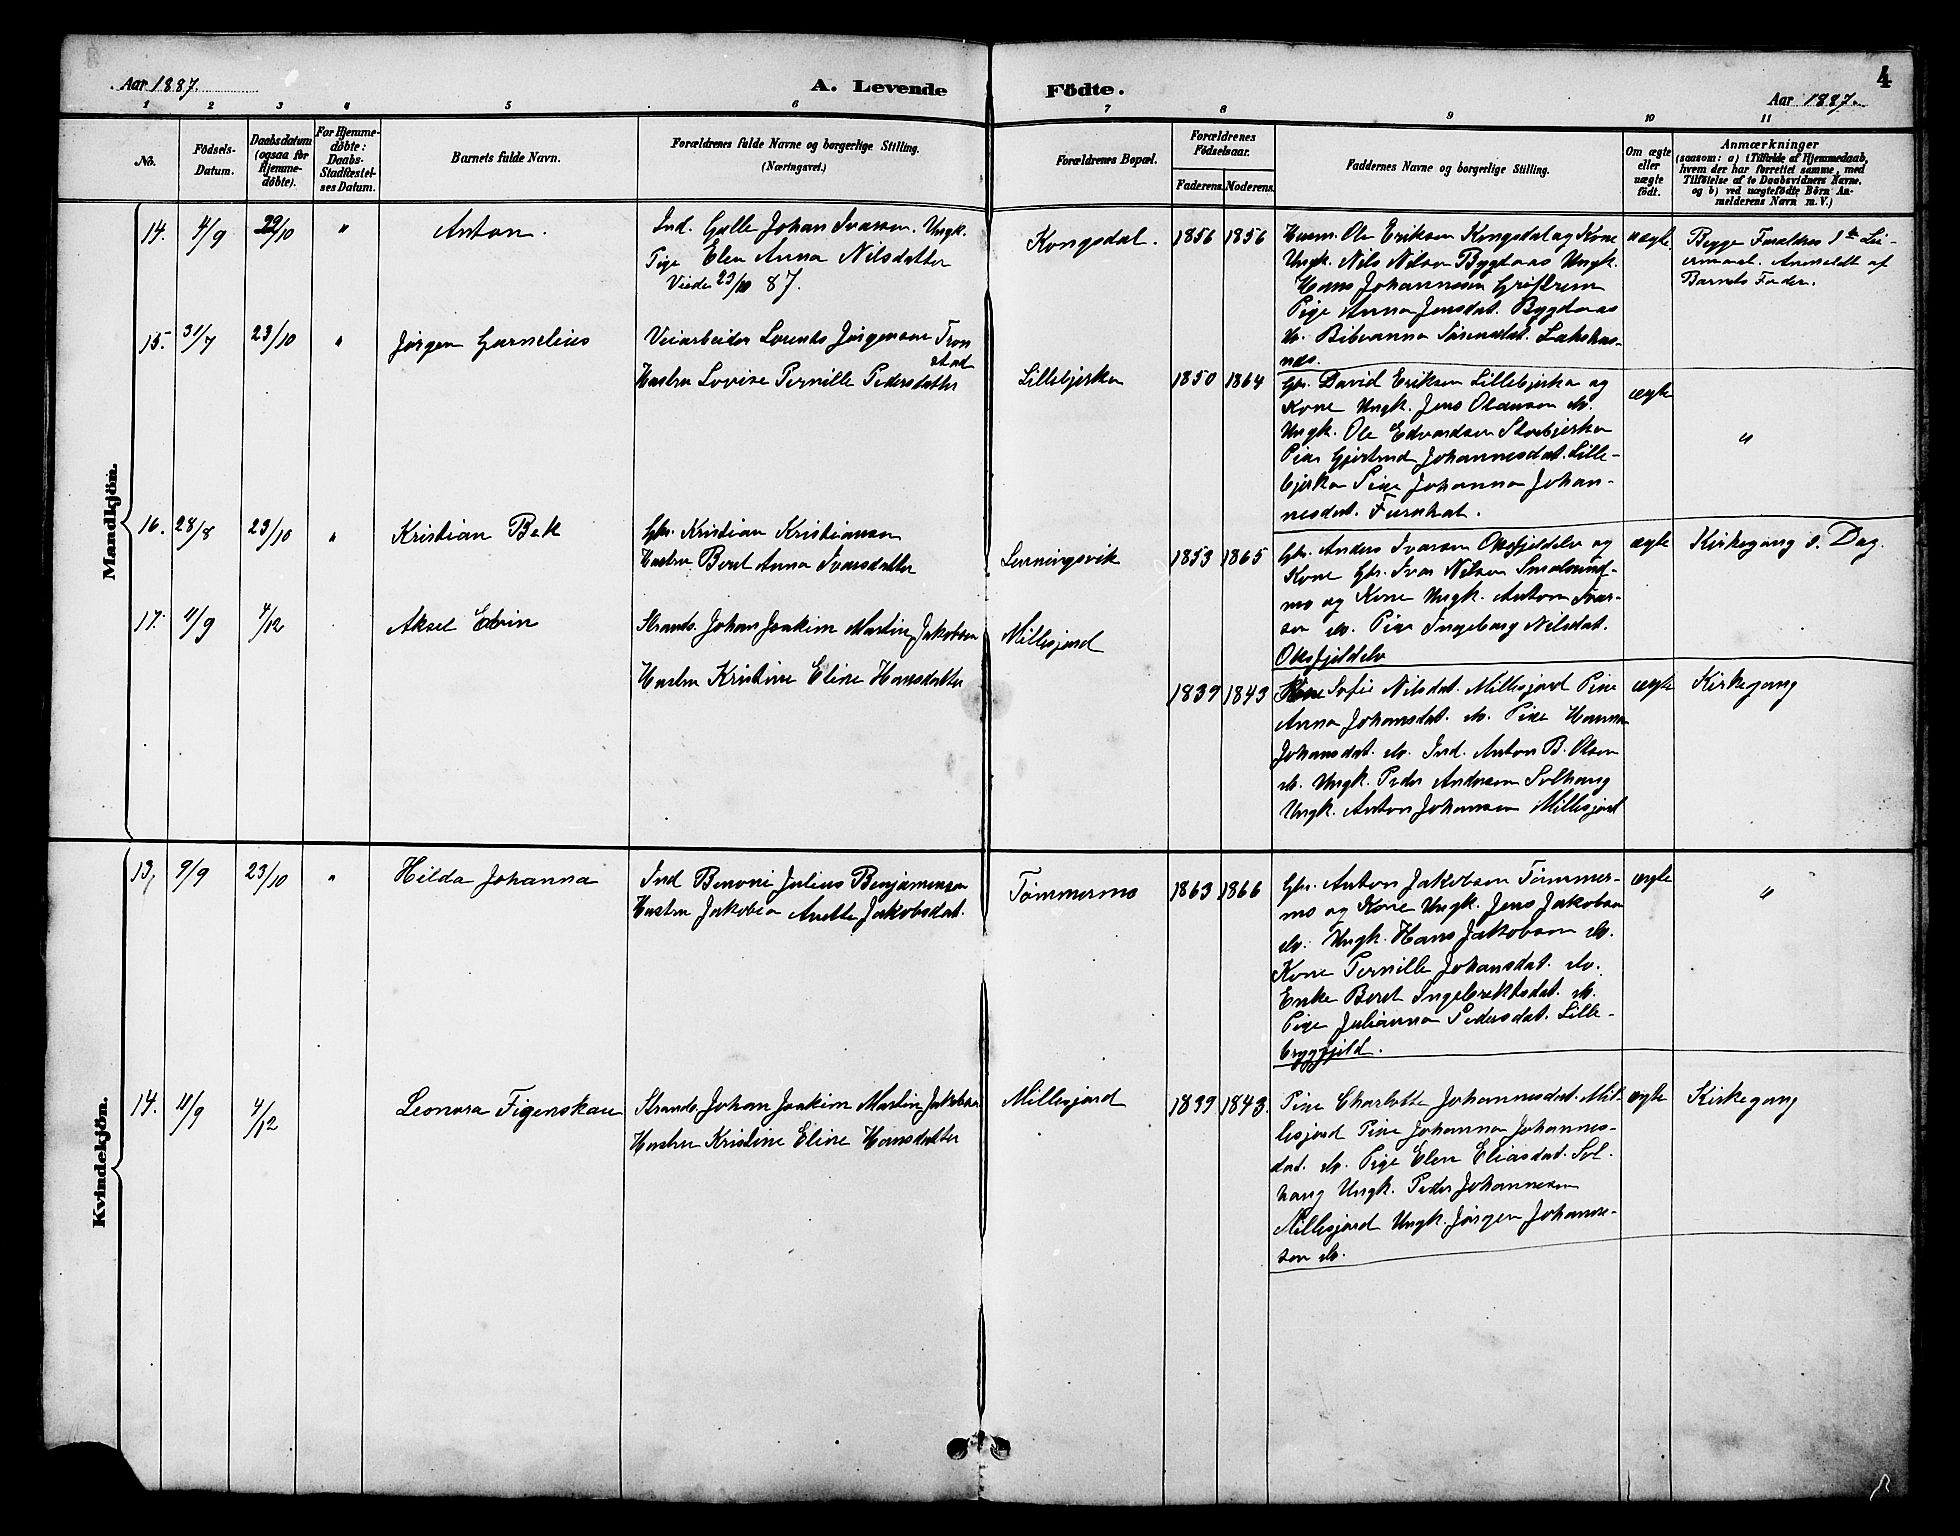 Aar 1887.
A. Levende Födte.
4
Aar 1887.
1 2 3 4 5 6 7 8 9 10 11
No.
Födsels-
Datum.
Daabsdatum
(ogsaa for
Hjemme-
döbte).
For Hjemme-
döbte:
Daabs-
Stadfæstel-
ses Datum.
Barnets fulde Navn.
Forældrenes fulde Navne og borgerlige Stilling.
(Næringsvei.)
Forældrenes Bopæl.
Forældrenes
Födselsaar.
Faderens. Moderens.
Faddernes Navne og borgerlige Stilling.
Om ægte
eller
uægte
födt.
Anmærkninger
(saasom: a) i Tilfælde af Hjemmedaab,
hvem der har forrettet samme, med
Tilföielse af to Daabsvidners Navne,
og b) ved uægtefödte Börn An-
melderens Navn m. V.)
Mandkjön.
14. 4/9 22/10 " Anton.
Ind. Johan Ivarsen. Ungk.
Pige Elen Anna Nilsdatter
Viede 23/10 87.
Kongsdal. 1856 1856
Husm. Ole Eriksen Kongsdal og Kone
Ungk. Nils Nilsen Bygdaas Ungk.
Hans Johannesen
Pige Anna Jensdat. Bygdaas
do. Bibianna Sørensdat. Lakshus-
næs.
uægte
Begge Forældres 1ste Lei-
ermaal. Anmeldt af
Barnets Fader.
15. 31/7 23/10 " Jørgen Garnelius
Veiarbeider Lorents Jørgensen Tron
stad
Hustru Lovise Pernille Pedersdatter
Lillebjerka 1850 1864
Gbr. David Eriksen Lillebjerka og
Kone Ungk. Jens Olausen do.
Ungk. Ole Edvardsen Storbjerka
Pige Gjertrud Johannesdat. Lille-
bjerka Pige Johanna Johan-
nesdat.
ægte "
16. 28/8 23/10 " Kristian Bek
Gbr. Kristian Kristiansen
Hustru Beret Anna Ivarsdatter
Leirningsvik 1853 1865
Gbr. Anders Ivarsen Oksfjeldelv og
Kone Gbr. Ivar Nilsen Smalsund-
mo og Kone Ungk. Anton Ivar-
sen do. Pige Ingeborg Nilsdat.
Oksfjeldelv
ægte Kirkegang s. Dag.
17. 11/9 4/12 Aksel Edvin
Strands. Johan Joakim Martin Jakobsen
Hustru Kristine Eline Hansdatter
Millesjord
1839 1843
Kone Sofie Nilsdat. Millesjord Pige
Anna Johansdat. do. Pige Hanna
Johansdat. do. Ind. Anton B. Olsen
do. Ungk. Peder Andersen Solhaug
Ungk. Anton Johansen Millesjord
ægte Kirkegang
Kvindekjön.
13, 9/9 23/10 " Hilda Johanna
Ind Benoni Julius Benjaminsen
Hustru Jakobia Anette Jakobsdat.
Tømmermo 1863 1866
Gbr. Anton Jakobsen Tømmer-
mo og Kone Ungk. Jens Jakobsen
do. Ungk. Hans Jakobsen do.
Kone Pernille Johansdat. do.
Enke Beret Ingebrektsdat. do.
Pige Julianna Pedersdat. Lille-
bryggfjeld.
ægte "
14. 11/9 4/12 Leonora Figenskau
Strands. Johan Joakim Martin Jakobsen
Hustru Kristine Eline Hansdatter
Millesjord 1839 1843.
Pige Charlotte Johannesdat. Mil-
lesjord Pige Johanna Johannes-
dat. do. Pige Elen Eliasdat. Sol-
haug Ungk. Peder Johannesen
Millesjord Ungk. Jørgen Johanne-
sen do.
ægte Kirkegang